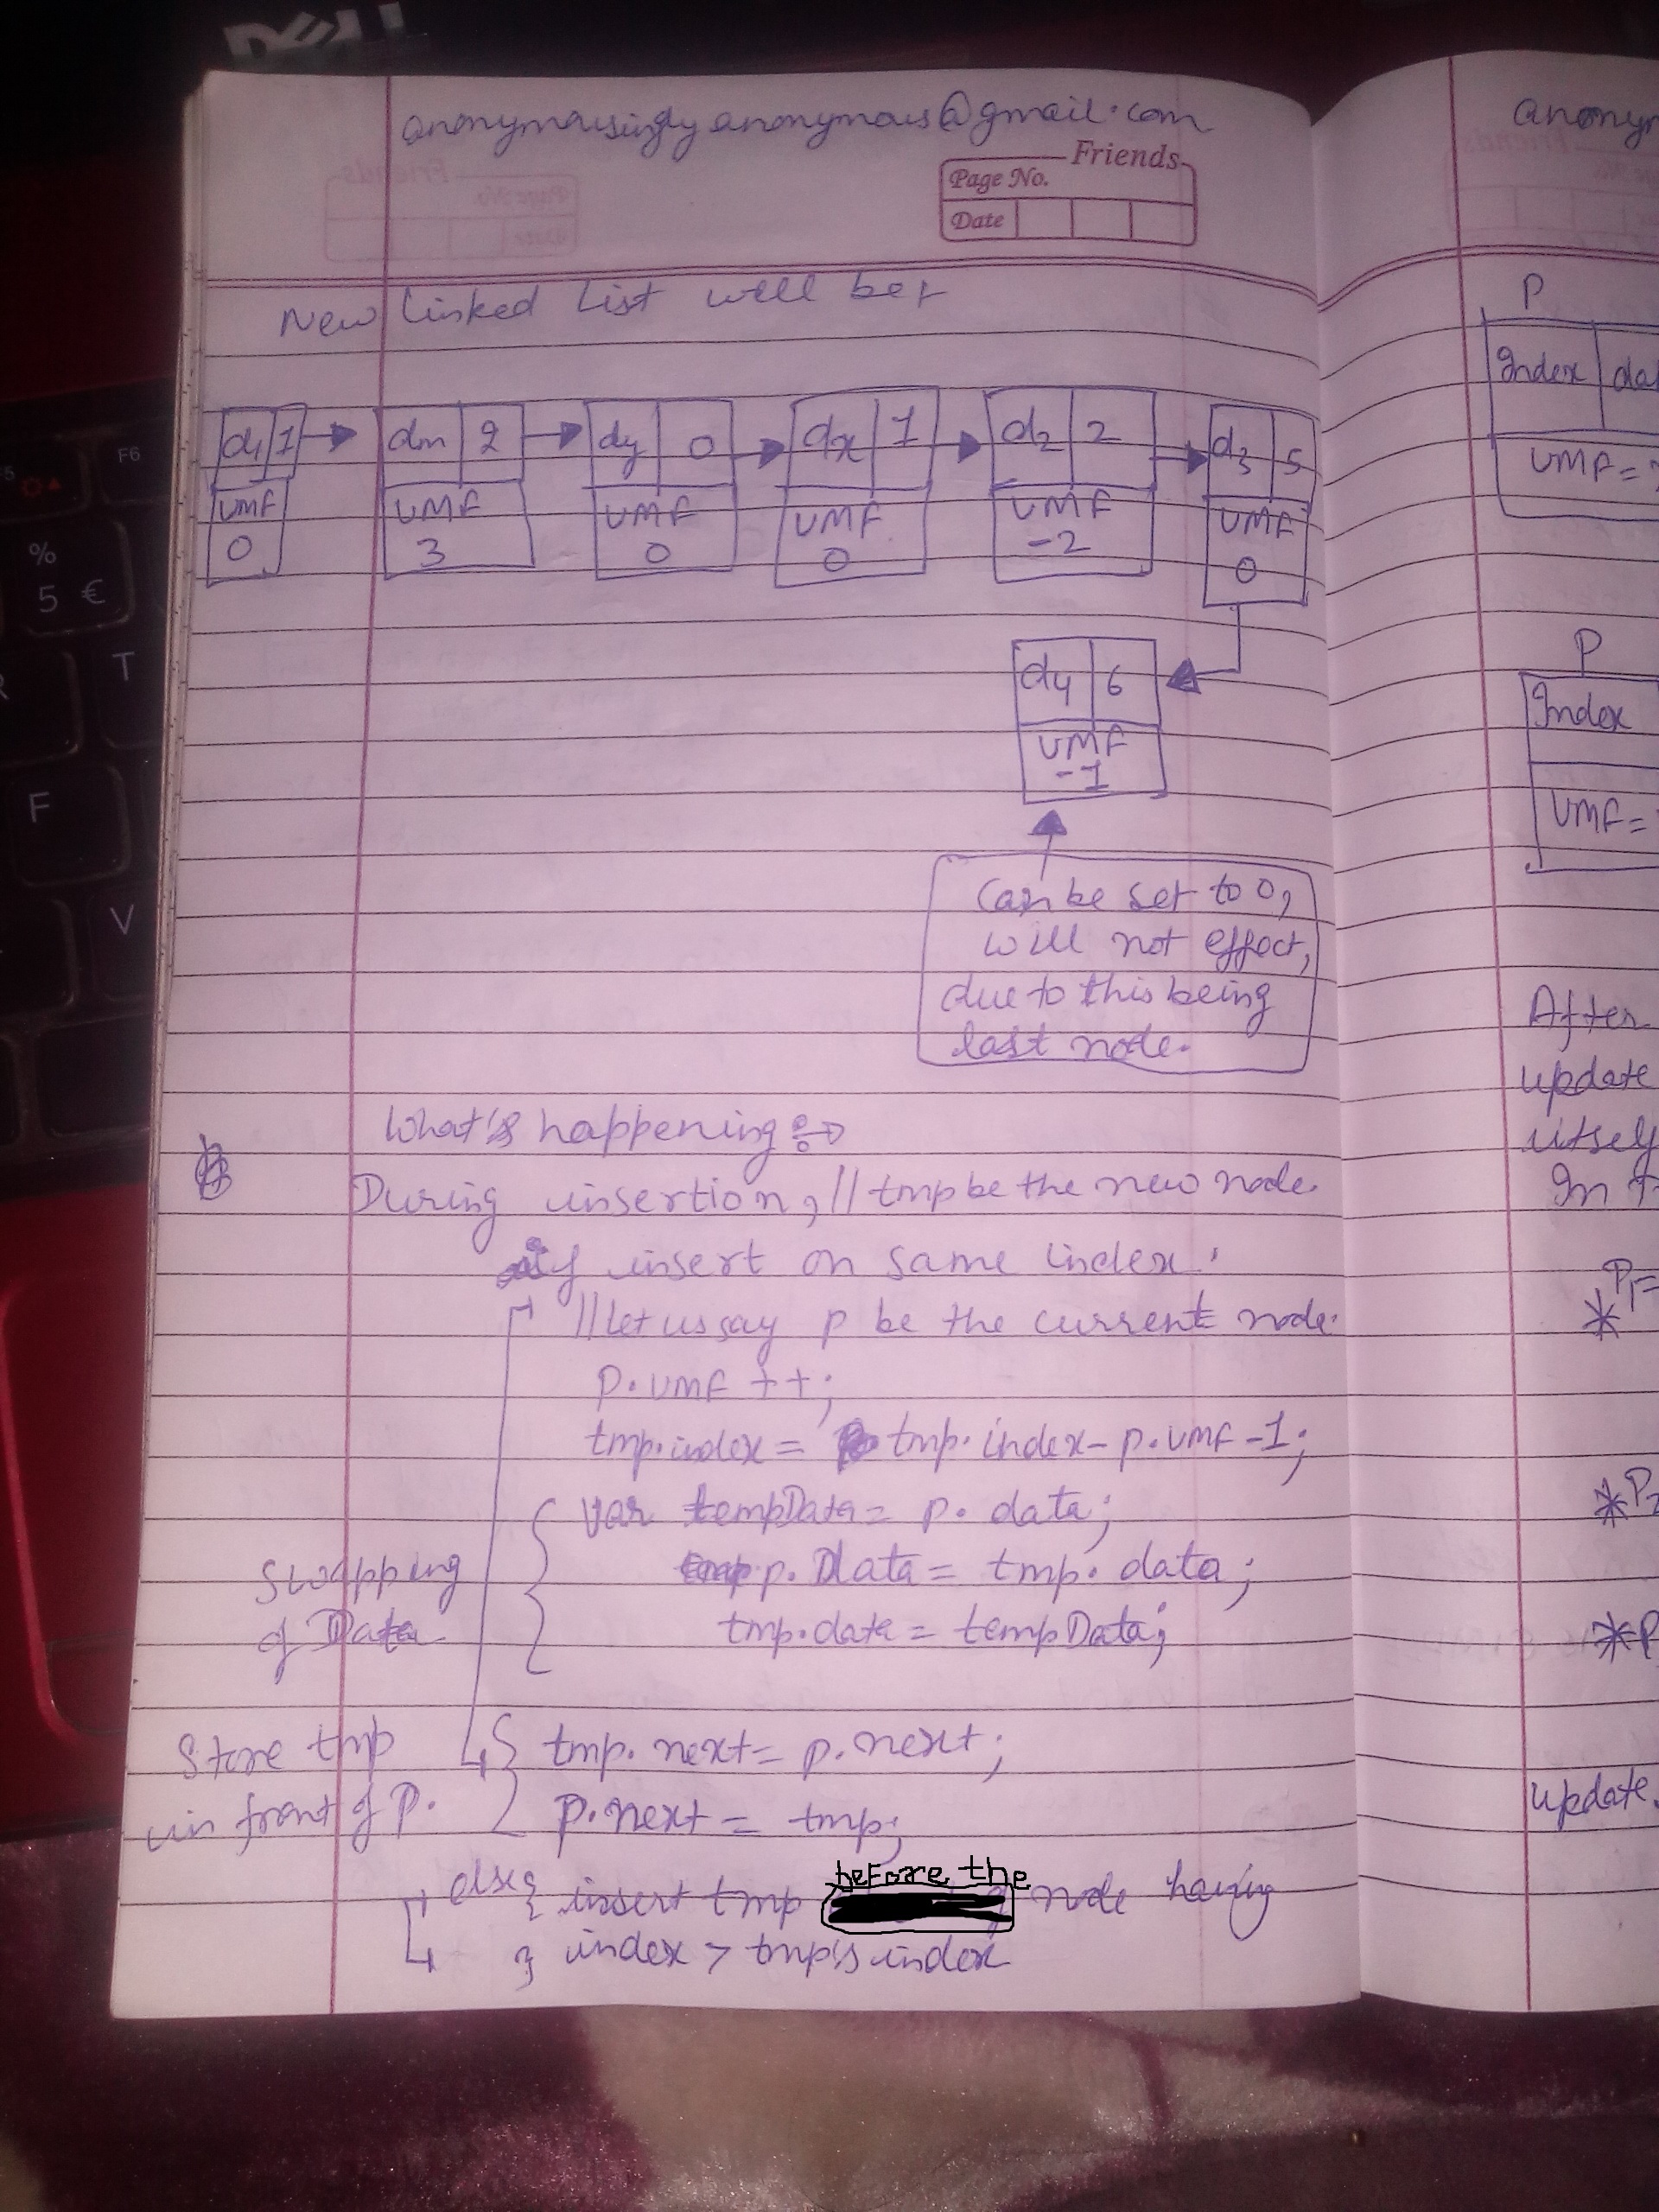 DELL
anonymousingly anonymous@gmail.com
Friends
Page No.
Date
New Linked List will be:
d1 1
VMF
0
dm 2
VMF
3
dy 0
VMF
0
dx 1
VMF
0
d2 2
VMF
-2
d3 5
VMF
0
d4 6
VMF
-1
Can be set to 0,
will not effect,
due to this being
last node.
What's happening
During insertion, // tmp be the new node.
if insert on same index:
// let us say p be the current node.
p.VMF ++;
tmp.index = tmp.index - p.VMF - 1;
var tempData = p.data;
p.Data = tmp.data;
tmp.data = tempData;
Swapping
of Data
tmp.next = p.next;
p.next = tmp;
Store tmp
in front of P.
else { insert tmp before the node having
} index > tmp's index
P
Index
VMF =
P
Index
VMF =
After
update
itself
In
P1=
*
*P2
*P
update.
F6
%
5 €
T
F
V